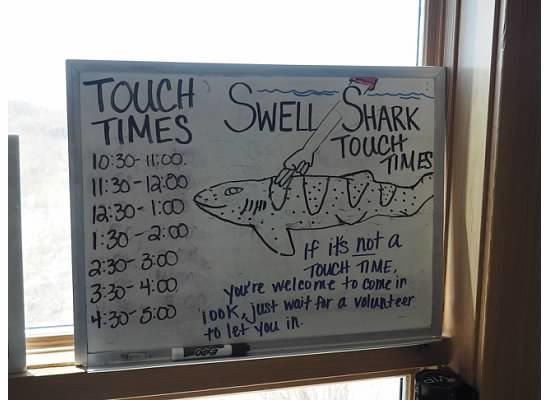 TOUCH
TIMES
10:30-11:00
11:30-12:00
12:30-1:00
1:30-2:00
2:30-3:00
3:30-4:00
4:30-5:00
SWELL SHARK
TOUCH
TIMES
If it's not a
TOUCH TIME,
you're welcome to come in
look, just wait for a volunteer
to let you in.
EXPO